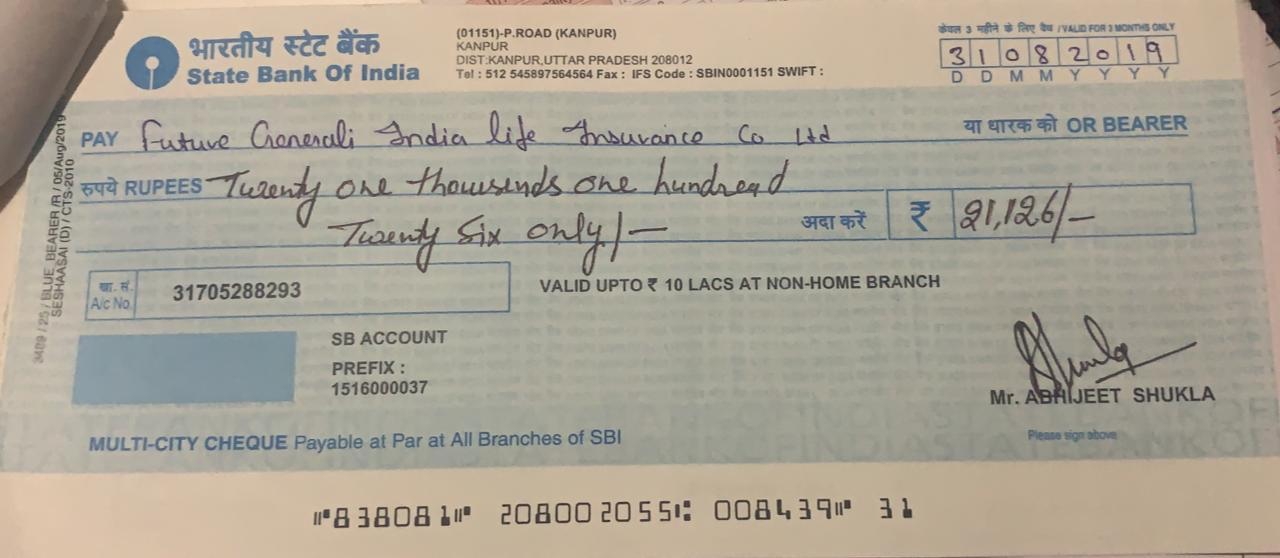 भारतीय स्टेट बैंक
State Bank Of India
(01151)-P.ROAD (KANPUR)
KANPUR
DIST:KANPUR,UTTAR PRADESH 208012
Tel : 512 545897564564 Fax : IFS Code : SBIN0001151 SWIFT :
केवल 3 महीने के लिए वैध /VALID FOR 3 MONTHS ONLY
3 1 0 8 2 0 1 9
D D M M Y Y Y Y
PAY Future Generali India life Insurance Co Ltd या धारक को OR BEARER
रुपये RUPEES Twenty one thousends one hundread
Twenty Six only/- अदा करें ₹ 21,126/-
खा. सं.
A/c No. 31705288293
VALID UPTO ₹ 10 LACS AT NON-HOME BRANCH
SB ACCOUNT
PREFIX :
1516000037
Mr. ABHIJEET SHUKLA
Please sign above
MULTI-CITY CHEQUE Payable at Par at All Branches of SBI
⑈838081⑈ 208002055⑆ 008439⑈ 31
3489 / 25 / BLUE_BEARER /R / 05/Aug/2019
SESHAASAI (D) / CTS-2010